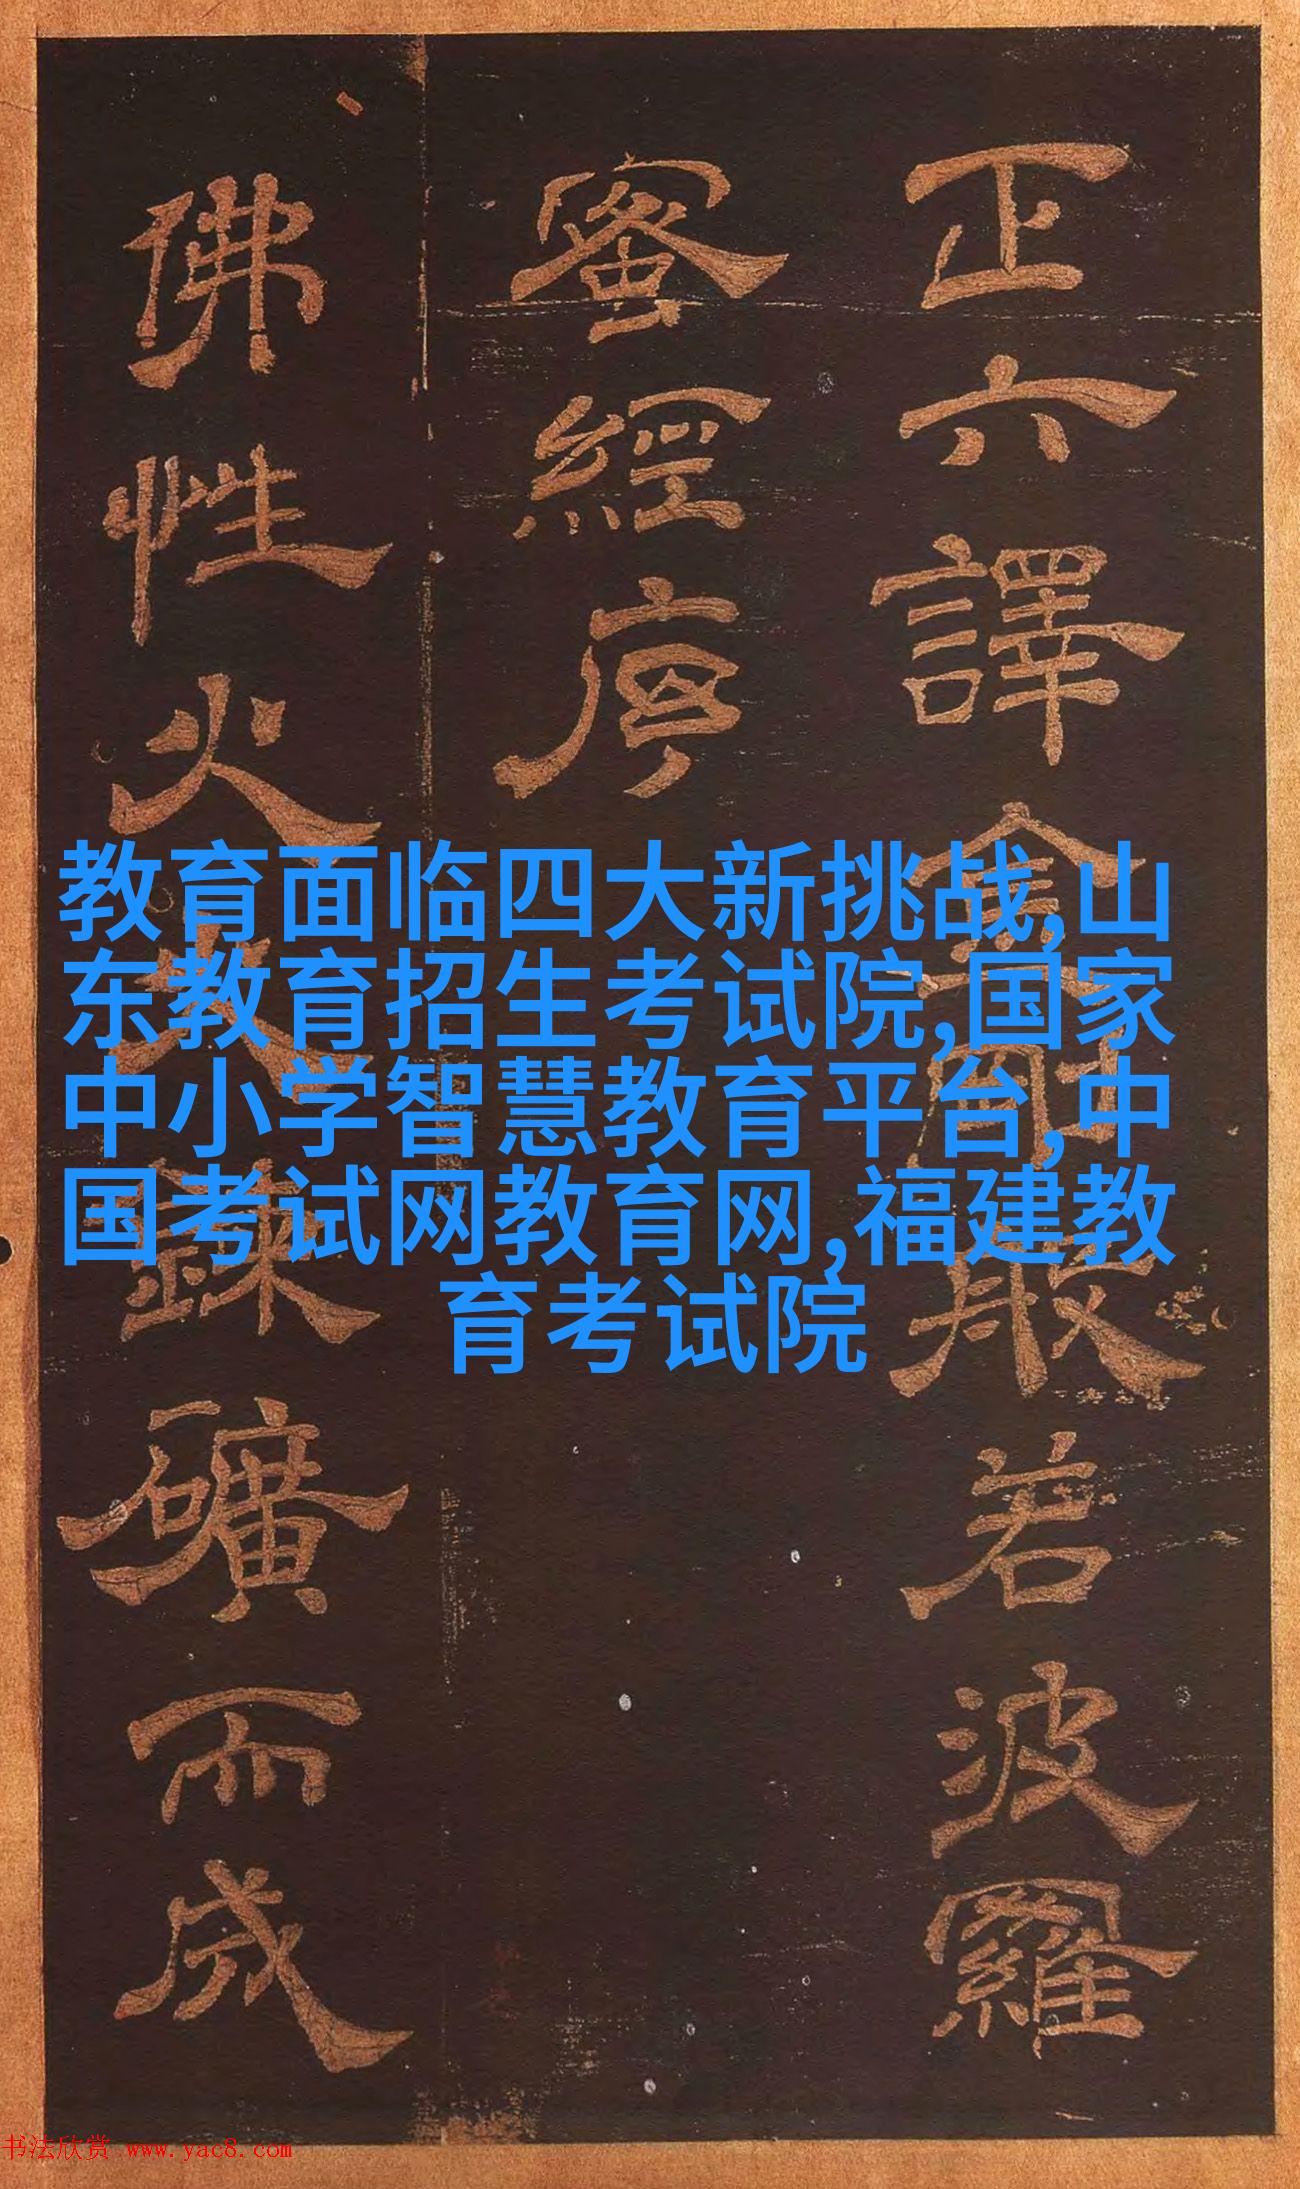 正六譯金剛般若波羅
蜜經序
佛性火鍊礦而成
教育面临四大新挑战,山
东教育招生考试院,国家
中小学智慧教育平台,中
国考试网教育网,福建教
育考试院
书法欣赏 www.yac8.com